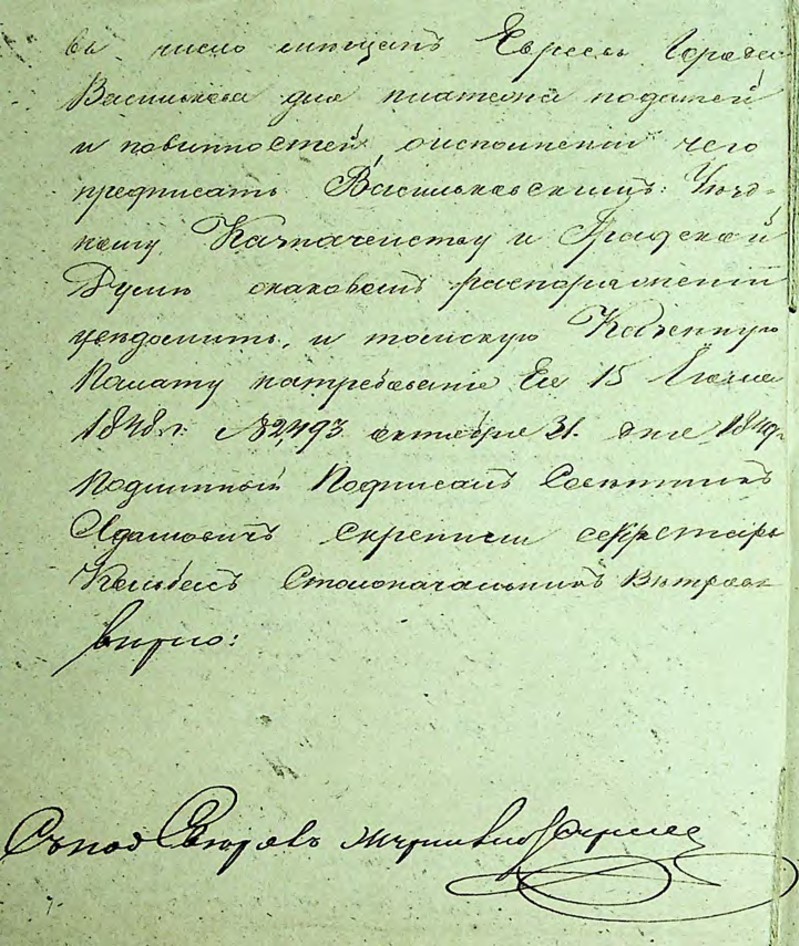 въ число мещанъ Евреевъ Города
Василькова для платежа податей
и повинностей, оисполненіи чего
предписать Васильковскимъ: Уѣзд-
ному Казначейству и Градской
Думѣ окаковомъ распоряженіи
уведомить, и томскую Казенную
Палату натребованіе Ее 15 Іюля
1848 г. №2,493 октября 31. дня 1849г
Подлинной Подписалъ Совѣтникъ
Адамовичъ скрепили секретарь
Столоначальникъ
Вѣрно: